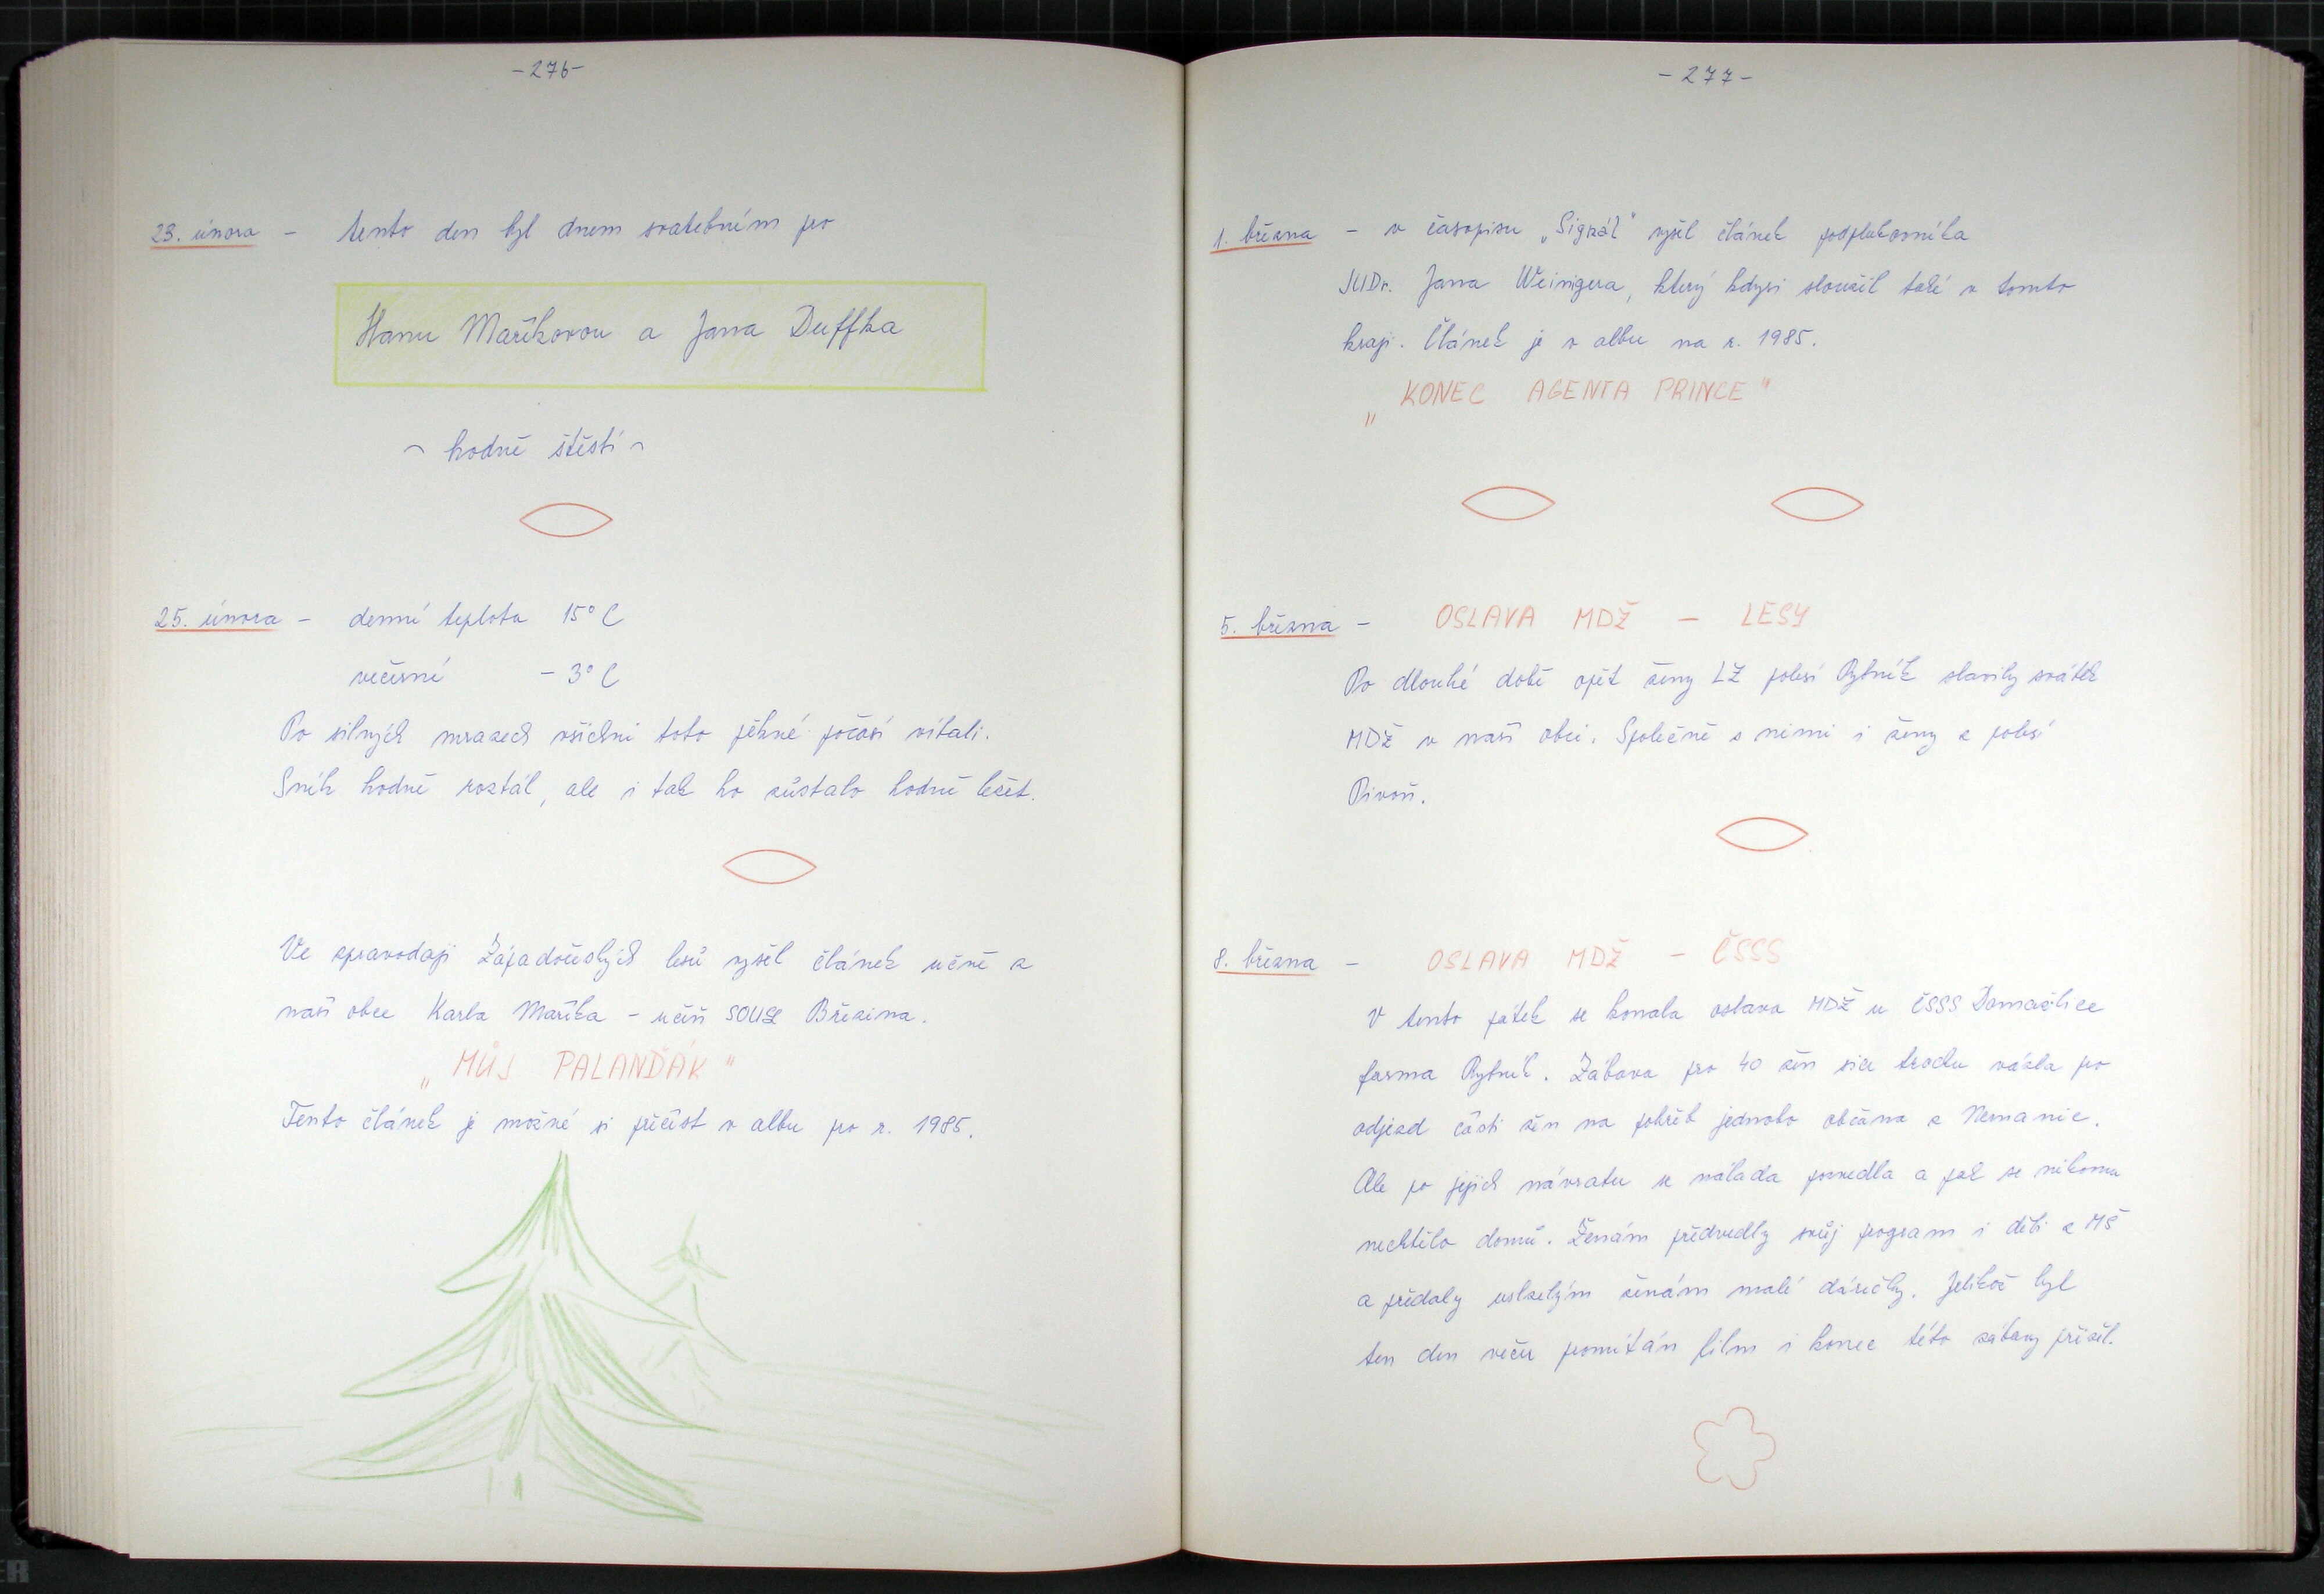 -276-
23. února - tento den byl dnem svatebním pro
Hanu Maříkovou a Jana Duffka
~ hodně štěstí ~
25. února - denní teplota 15°C
večerní - 3°C
Po silných mrazech všichni toto pěkné počasí vítali.
Sníh hodně roztál, ale i tak ho zůstalo hodně ležet.
Ve zpravodaji Západočeských lesů vyšel článek učně z
naší obce Karla Maříka - učeň SOUSL Březina.
„MŮJ PALANĎÁK"
Tento článek je možné si přečíst v albu pro r. 1985.
-277-
1. března - v časopisu „Signál" vyšel článek podplukovníka
JUDr. Jana Weinigera, který kdysi sloužil také v tomto
kraji. Článek je v albu na r. 1985.
„KONEC AGENTA PRINCE"
5. března - OSLAVA MDŽ - LESY
Po dlouhé době opět ženy LZ polesí Rybník slavily svátek
MDŽ v naší obci. Společně s nimi i ženy z polesí
Pivoň.
8. března - OSLAVA MDŽ - ČSSS
V tento pátek se konala oslava MDŽ u ČSSS Domažlice
farma Rybník. Zábava pro 40 žen sice trochu vázla po
odjezd části žen na pohřeb jednoho občana z Nemanic.
Ale po jejich návratu se nálada pozvedla a pak se nikomu
nechtělo domů. Ženám předvedly svůj program i děti z MŠ
a předaly ženám malé dárečky. Jelikož byl
ten den večer promítán film i konec této zábavy přišel.